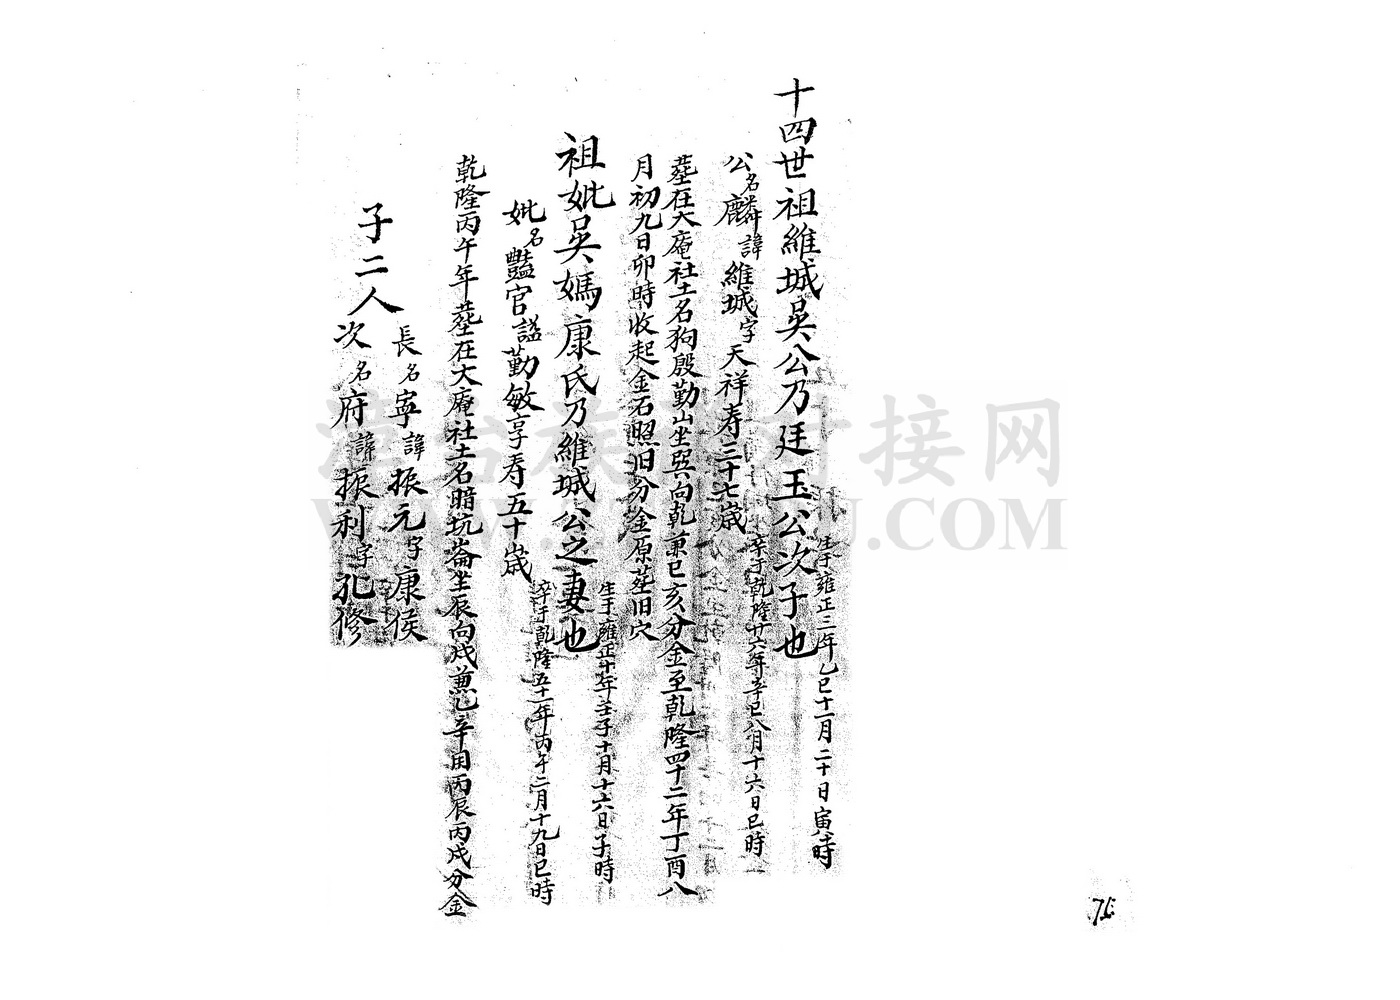 十四世祖維城吳公乃廷玉公次子也
生于雍正三年乙巳十一月二十日寅時
公名麟諱維城字天祥寿三十七歲
卒于乾隆廿六年辛巳八月十六日巳時
葬在大庵社土名狗殷勤山坐巽向乾兼巳亥分金至乾隆四十二年丁酉八
月初九日卯時收起金石照旧分金原葬旧穴
祖妣吳媽康氏乃維城公之妻也
生于雍正十年壬子十月十六日子時
妣名豔官謚勤敏享寿五十歲
卒于乾隆五十一年丙午二月十九日巳時
乾隆丙午年葬在大庵社土名暗坑崙坐辰向戌兼乙辛用丙辰丙戌分金
子二人
長名寧諱振元字康侯
次名府諱振利字孔修
接网
.COM